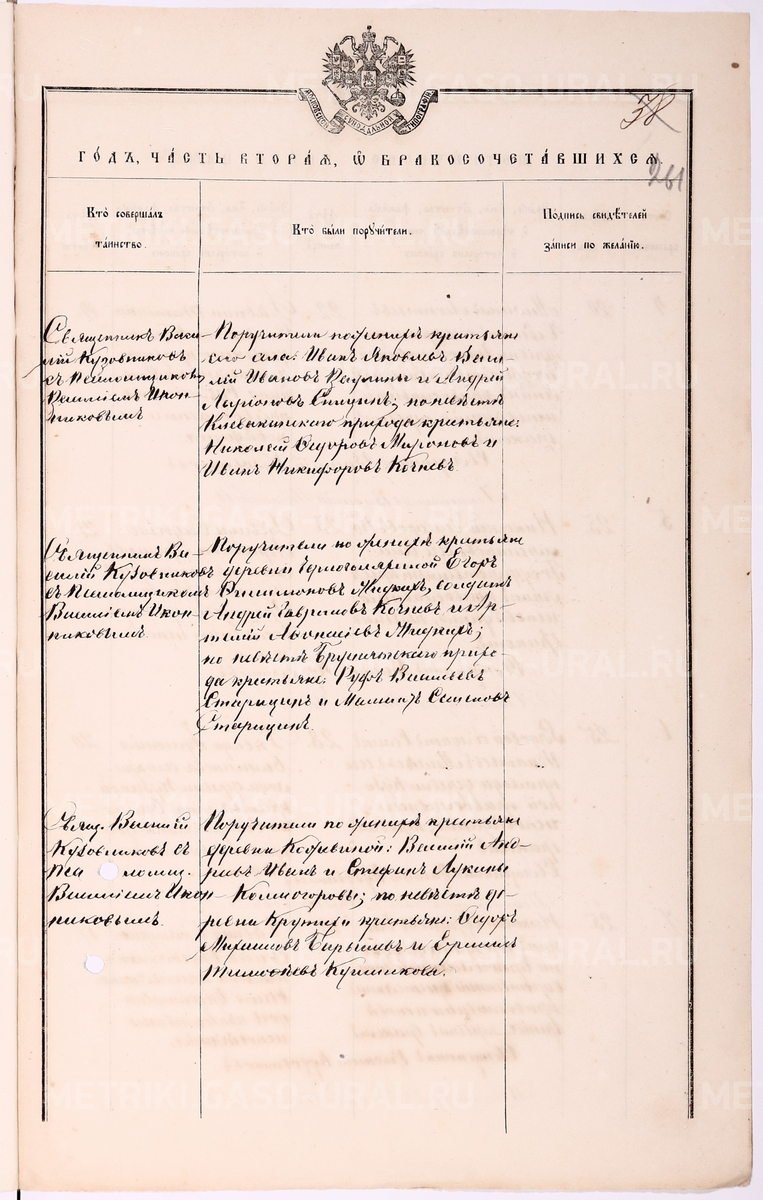 МОСКОВСКОЙ СѴНОДАЛЬНОЙ ТИПОГРАФІИ
38
ГО́ДЪ, ЧА́СТЬ ВТОРА́Ѧ, Ѽ БРАКОСОЧЕТА́ВШИХСѦ.
261
Кто̀ соверша́лъ
та́инство.
Кто̀ бы́ли порꙋчи́тели.
По́дпись свидѣ́телей
за́писи по жела́нію.
Священникъ Васи-
лій Кузовниковъ
съ Псаломщикомъ
Василіемъ Икон-
никовымъ
Поручители по женихѣ крестьяне
сего села: Иванъ Яковлевъ Васи-
лій Ивановъ и Андрей
Ларіоновъ; по невѣстѣ
Клевакинскаго прихода крестьяне:
Николай Ѳедоровъ Мироновъ и
Иванъ Никифоровъ Кочневъ
Священникъ Ва-
силій Кузовниковъ
съ Псаломщикомъ
Василіемъ Икон-
никовымъ
Поручители по женихѣ крестьяне
деревни Егоръ
Филимоновъ Жидкихъ, солдатъ
Андрей Гавриловъ Кочневъ и Ар-
темій Аѳонасіевъ Жидкихъ;
по невѣстѣ прихо-
да крестьяне: Руфъ Васильевъ
Старицинъ и Семеновъ
Старицинъ.
Свящ. Василій
Кузовниковъ съ
Псаломщ.
Василіемъ Икон-
никовымъ.
Поручители по женихѣ крестьяне
деревни: Василій Анд-
реевъ Иванъ и Стефанъ Лукины
Колмогоровы; по невѣстѣ де-
ревни Крутихи крестьяне: Ѳедоръ
Михаиловъ Барышевъ и Ермилъ
Тимоѳеевъ Куминовъ.
METRIKI.GASO-URAL.RU